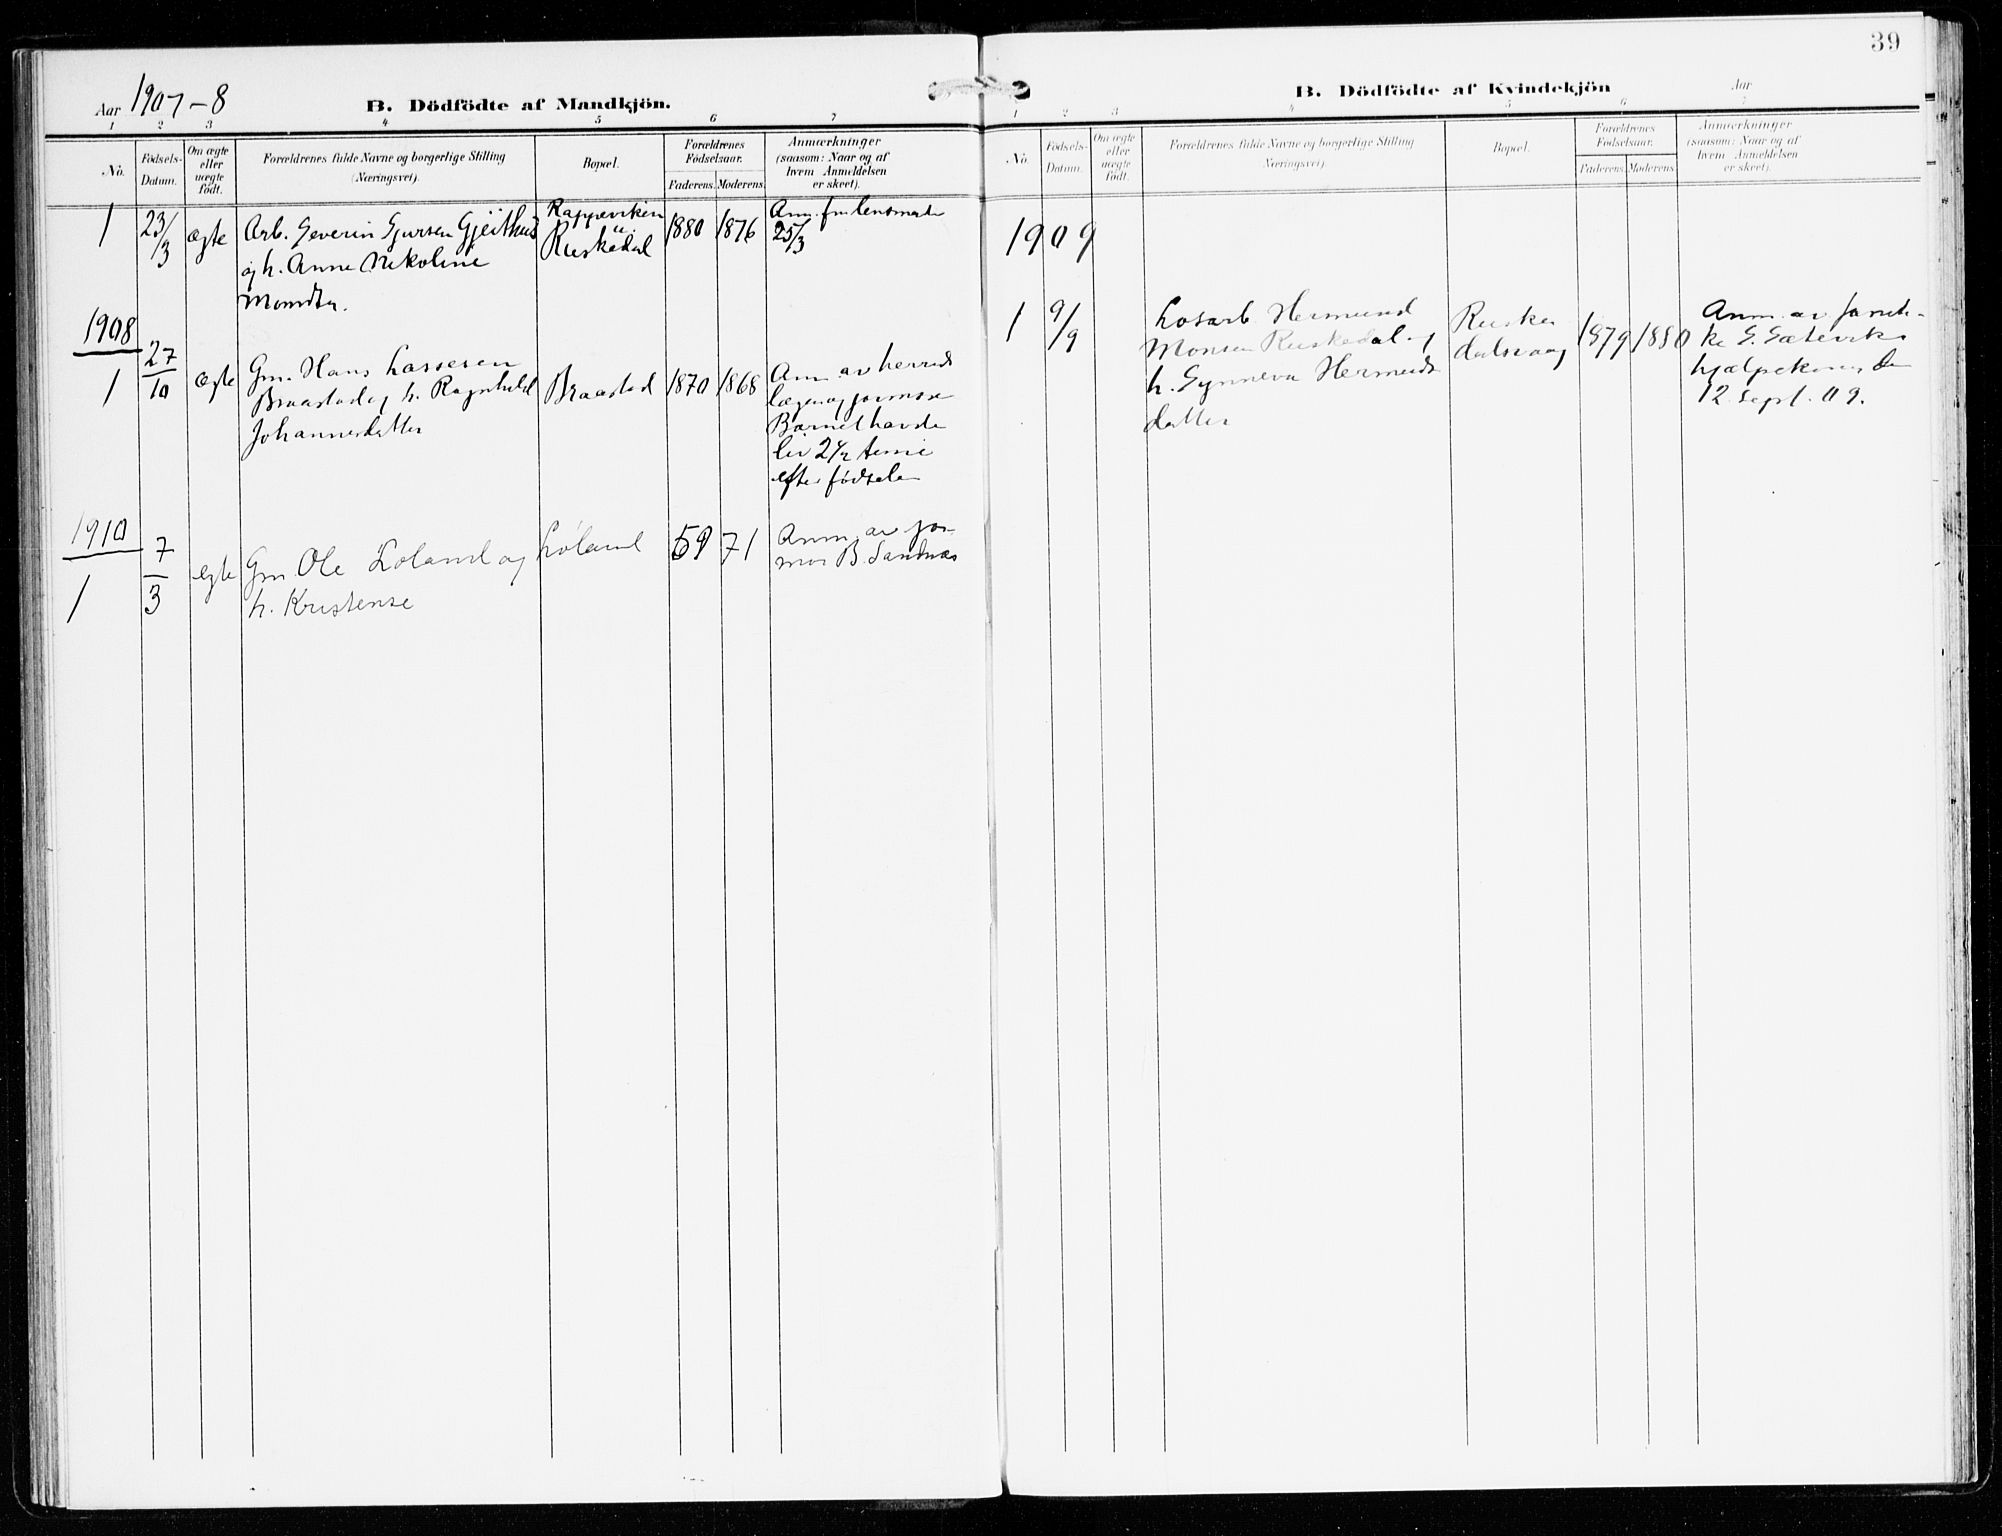 Aar 1907-8
B. Dödfödte af Mandkjön.
1 2 3 4 5 6 7
No. Födsels-Datum. Om ægte eller uægte födt. Forældrenes fulde Navne og borgerlige Stilling (Næringsvei). Bopæl. Forældrenes Födselsaar. Faderens. Moderens. Anmærkninger (saasom: Naar og af hvem Anmeldelsen er skeet).
1 23/3 ægte Arb. Severin Sjursen Gjeithus Rappeviken u. 1880 1876 Anm. fm lensmand
og h. Anne Nikoline Ruskedal 25/3
Monsdtr.
1908
1 27/10 ægte Gm. Hans Lassesen Braastad 1870 1868 Anm av herreds
Braastad og h. Ragnhild lægen og jormoren
Johannesdatter Barnet havde
liv 2 1/2 time
efter fødselen
1910
1 7/3 egte Gm. Ole Løland og Løland 59 71 Anm. av jor-
h. Kristense mor B. Sandnæs
39
B. Dödfödte af Kvindekjön
Aar
1 2 3 4 5 6 7
No. Födsels-Datum. Om ægte eller uægte födt. Forældrenes fulde Navne og borgerlige Stilling (Næringsvei). Bopæl. Forældrenes Födselsaar. Faderens. Moderens. Anmærkninger (saasom: Naar og af hvem Anmeldelsen er skeet).
1909
1 9/9 Løsarb. Hermund Ruske 1879 1880 Anm. av
Monsen Ruskedal og dalsvaag
h. Synneva Hermunds hjælpekone, den
datter 12 Sept. 09.